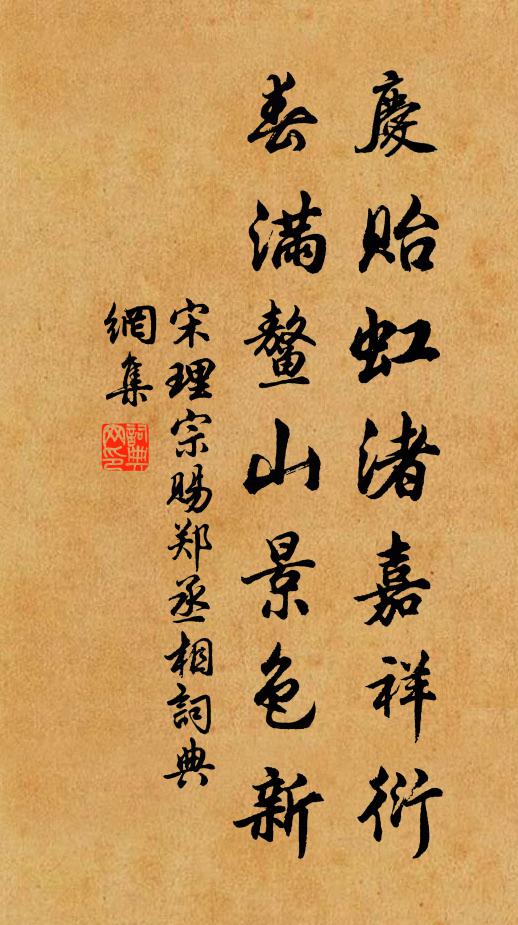 慶貽虹渚嘉祥衍
春滿鰲山景色新
宋理宗賜郑丞相詞典
網集
詞典
網印